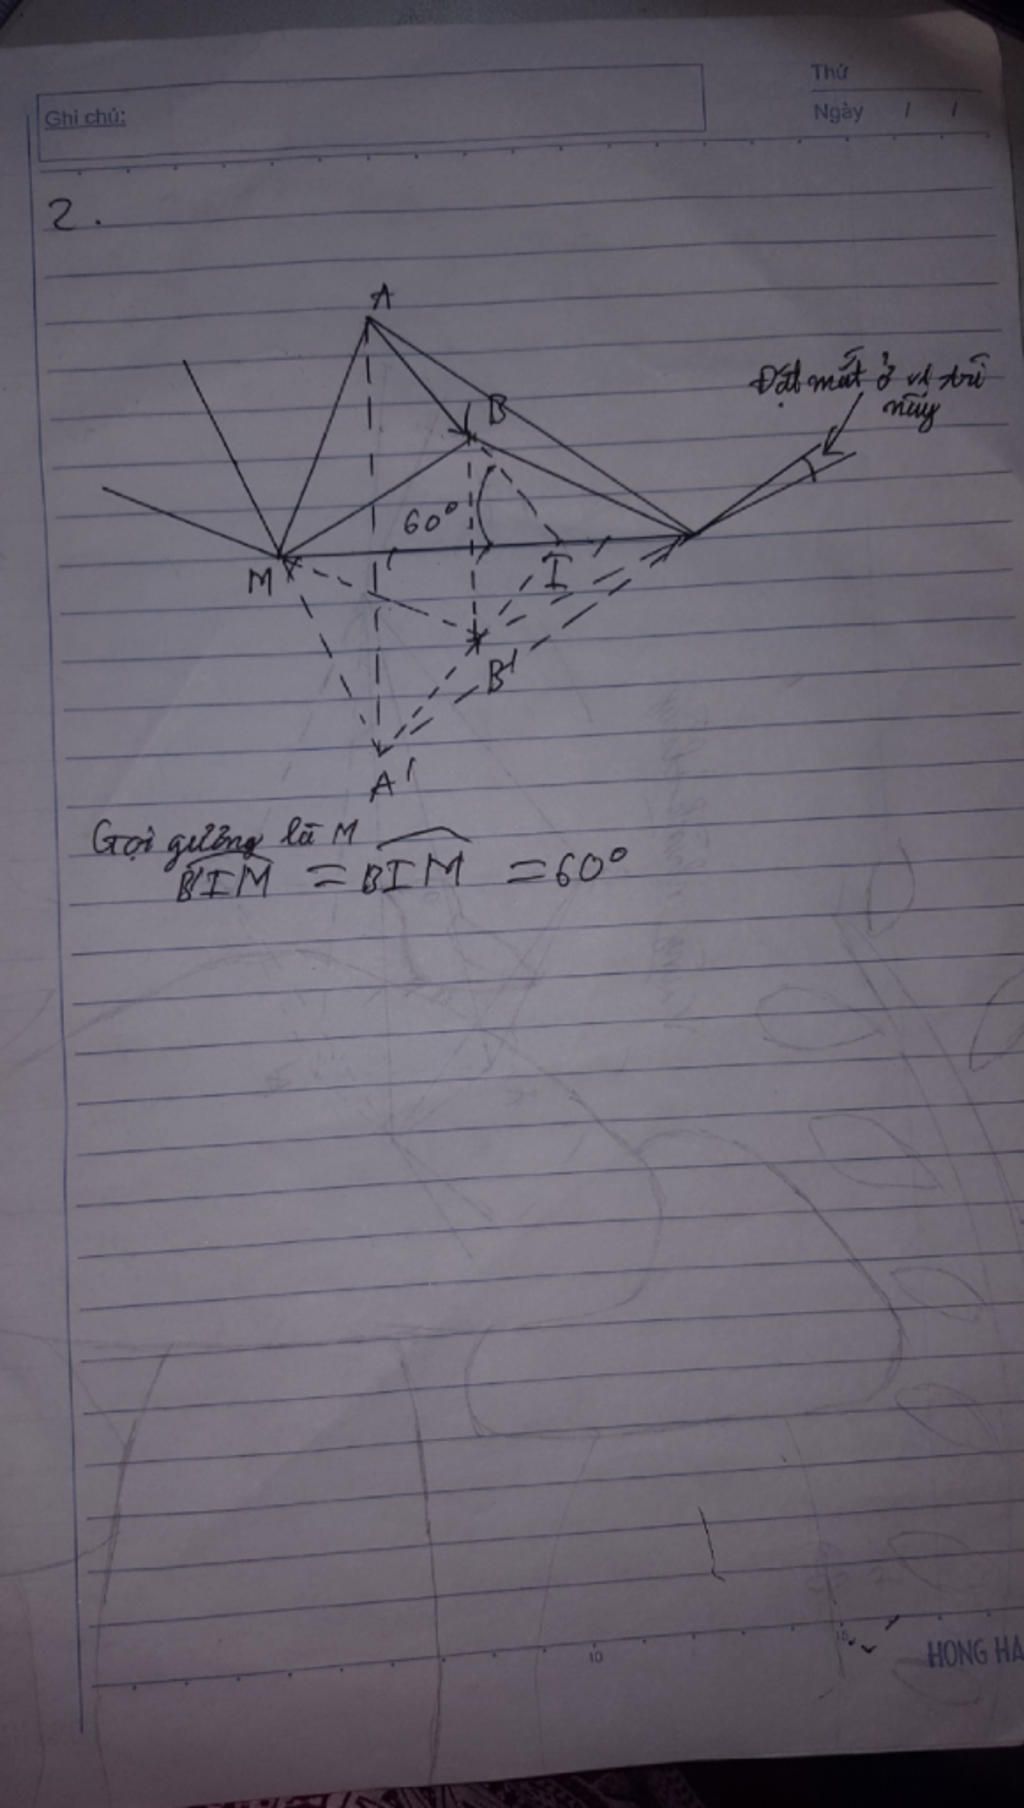 Ghi chú:
Thứ
Ngày / /
2.
A
B
Đặt mắt ở vị trí
này
60°
M
I
B'
A'
Gọi gương là M
B'IM = BIM = 60°
10
15
HONG HA